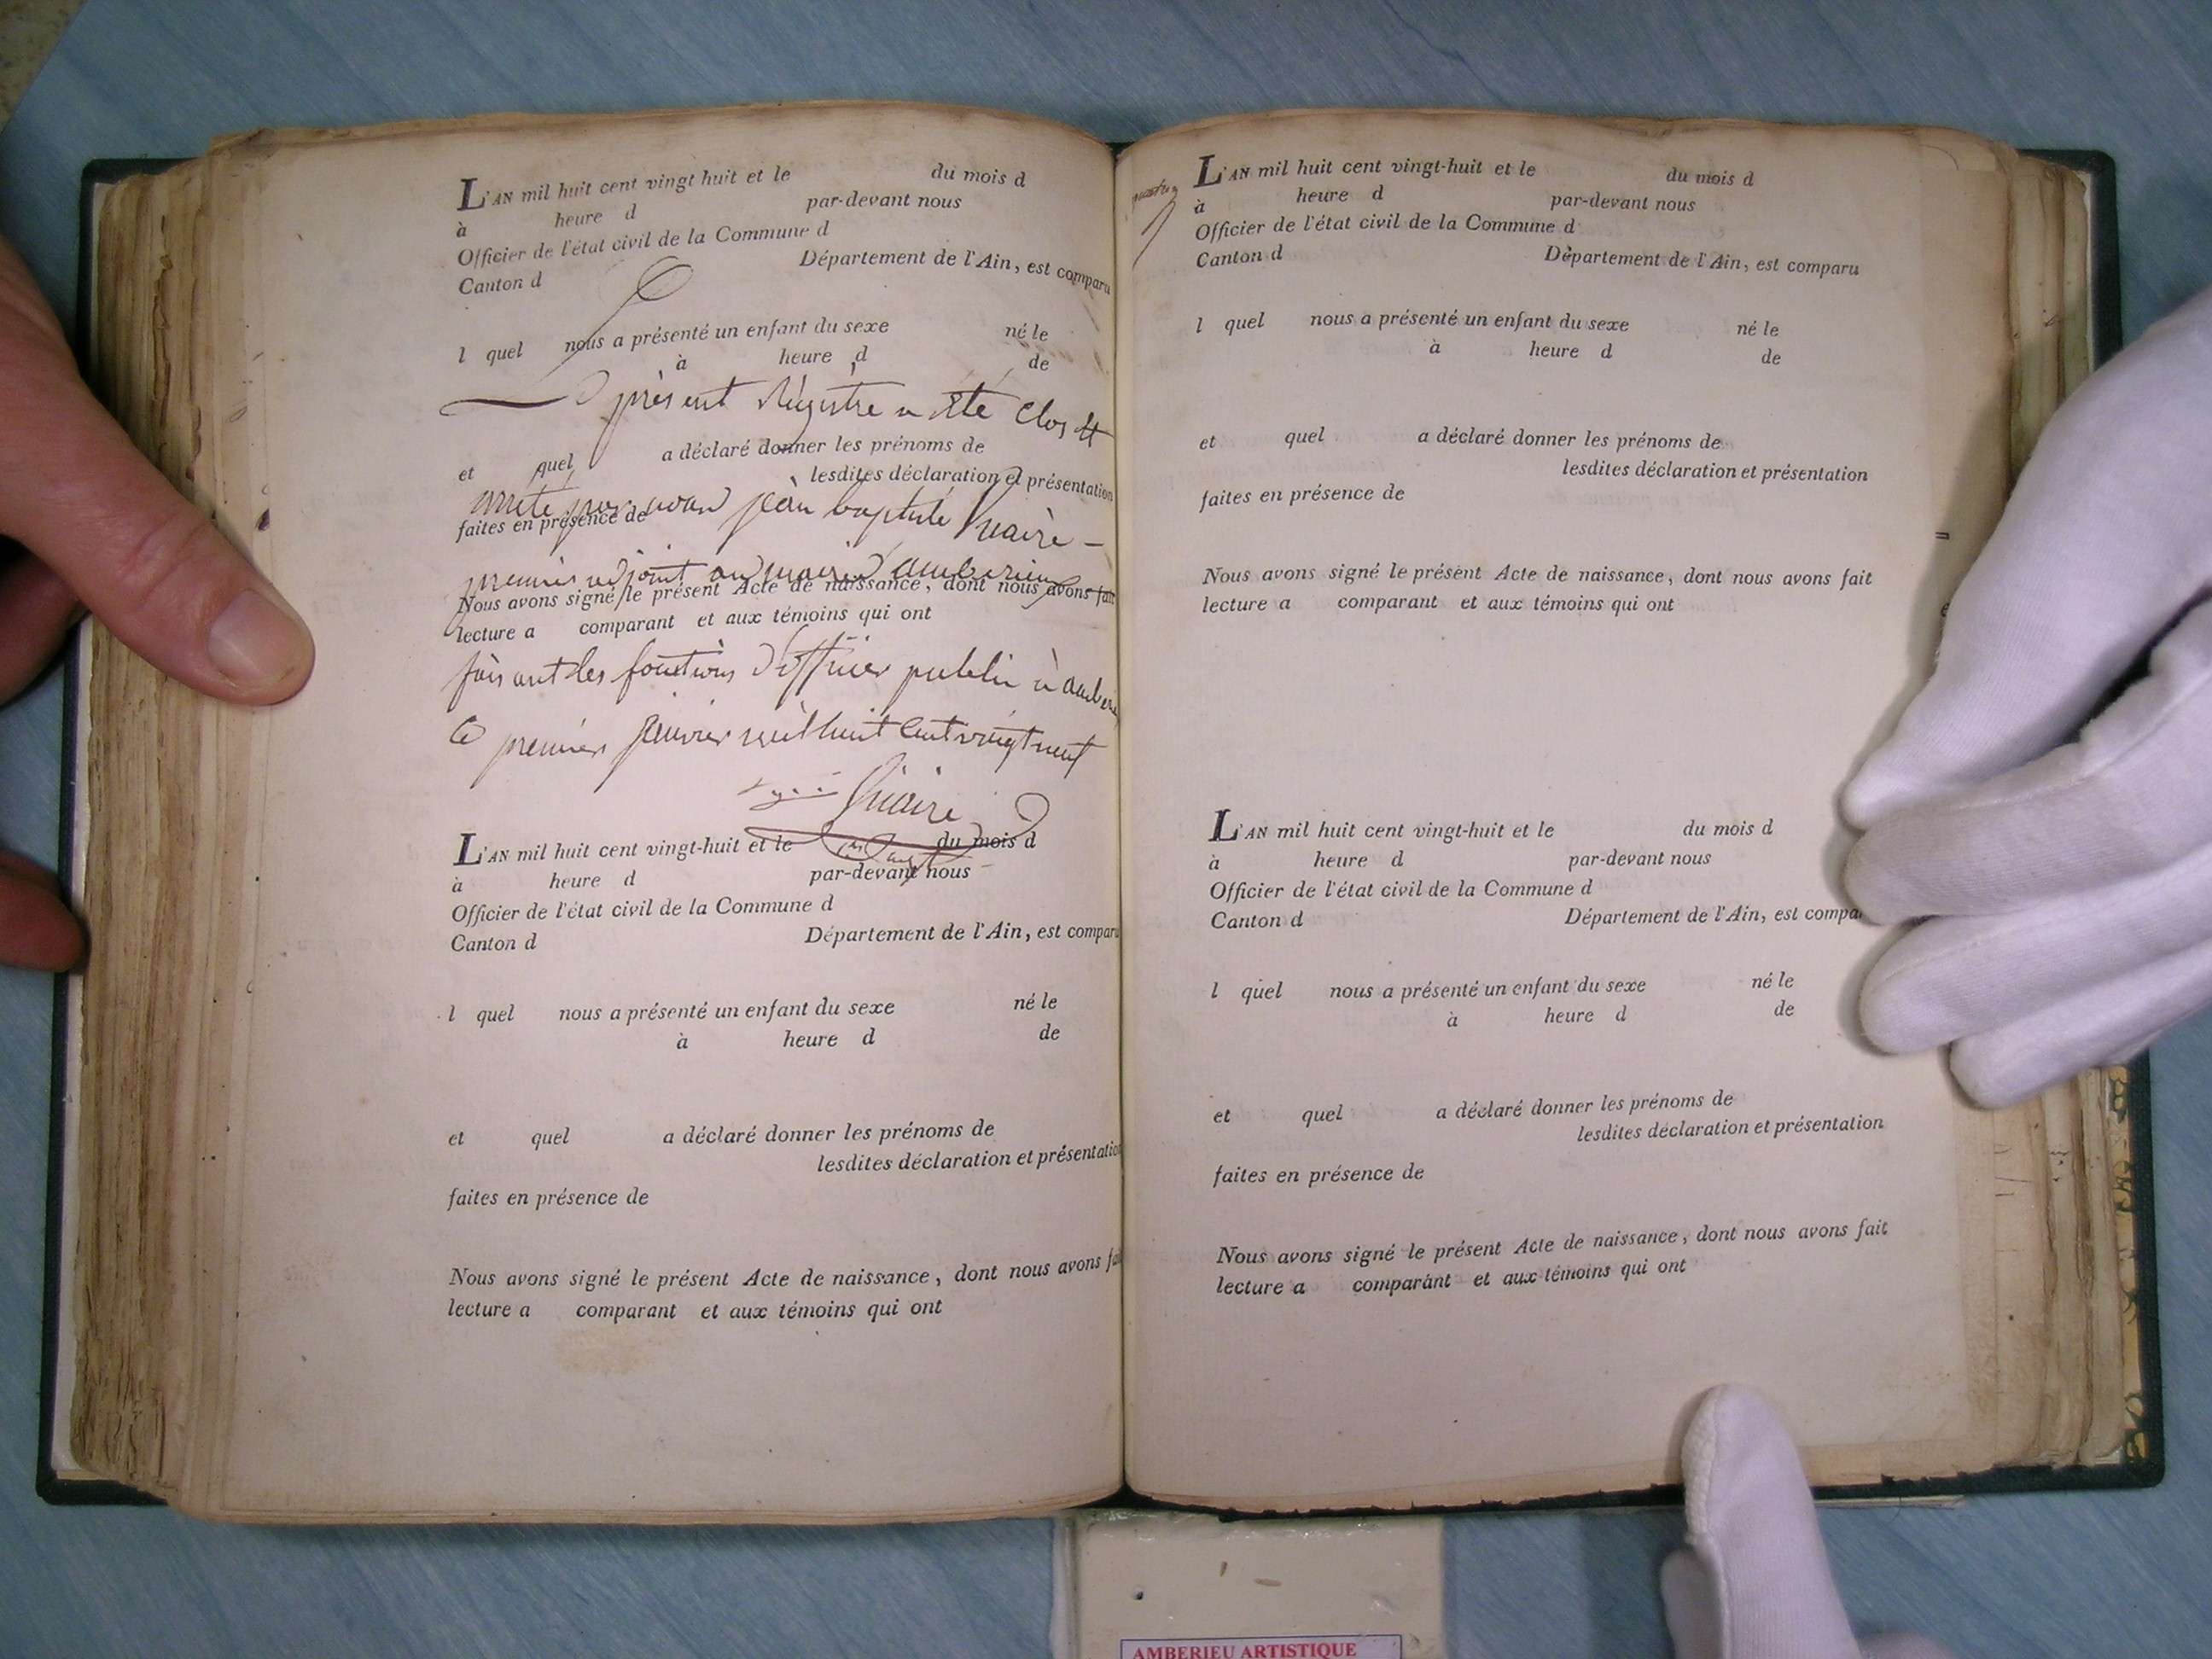 L'AN mil huit cent vingt huit et le du mois d
à heure d par-devant nous
Officier de l'état civil de la Commune d
Canton d Département de l'Ain, est comparu
l quel nous a présenté un enfant du sexe né le
à heure d de
présent Régistre a été Clos et
et quel a déclaré donner les prénoms de
lesdites déclaration et présentation
arrêté par nous jean baptiste
faites en présence de
premier adjoint au maire d'amberieu
Nous avons signé le présent Acte de naissance, dont nous avons fait
lecture a comparant et aux témoins qui ont
faisant les fonctions d'officier public à
le premier janvier mil huit cent vingt neuf
signé
L'AN mil huit cent vingt-huit et le du mois d
à heure d par-devant nous
Officier de l'état civil de la Commune d
Canton d Département de l'Ain, est comparu
l quel nous a présenté un enfant du sexe né le
à heure d de
et quel a déclaré donner les prénoms de
lesdites déclaration et présentation
faites en présence de
Nous avons signé le présent Acte de naissance, dont nous avons fai
lecture a comparant et aux témoins qui ont
L'AN mil huit cent vingt-huit et le du mois d
à heure d par-devant nous
Officier de l'état civil de la Commune d
Canton d Département de l'Ain, est comparu
l quel nous a présenté un enfant du sexe né le
à heure d de
et quel a déclaré donner les prénoms de
lesdites déclaration et présentation
faites en présence de
Nous avons signé le présent Acte de naissance, dont nous avons fait
lecture a comparant et aux témoins qui ont
L'AN mil huit cent vingt-huit et le du mois d
à heure d par-devant nous
Officier de l'état civil de la Commune d
Canton d Département de l'Ain, est compa
l quel nous a présenté un enfant du sexe né le
à heure d de
et quel a déclaré donner les prénoms de
lesdites déclaration et présentation
faites en présence de
Nous avons signé le présent Acte de naissance, dont nous avons fait
lecture a comparant et aux témoins qui ont
AMBERIEU ARTISTIQUE